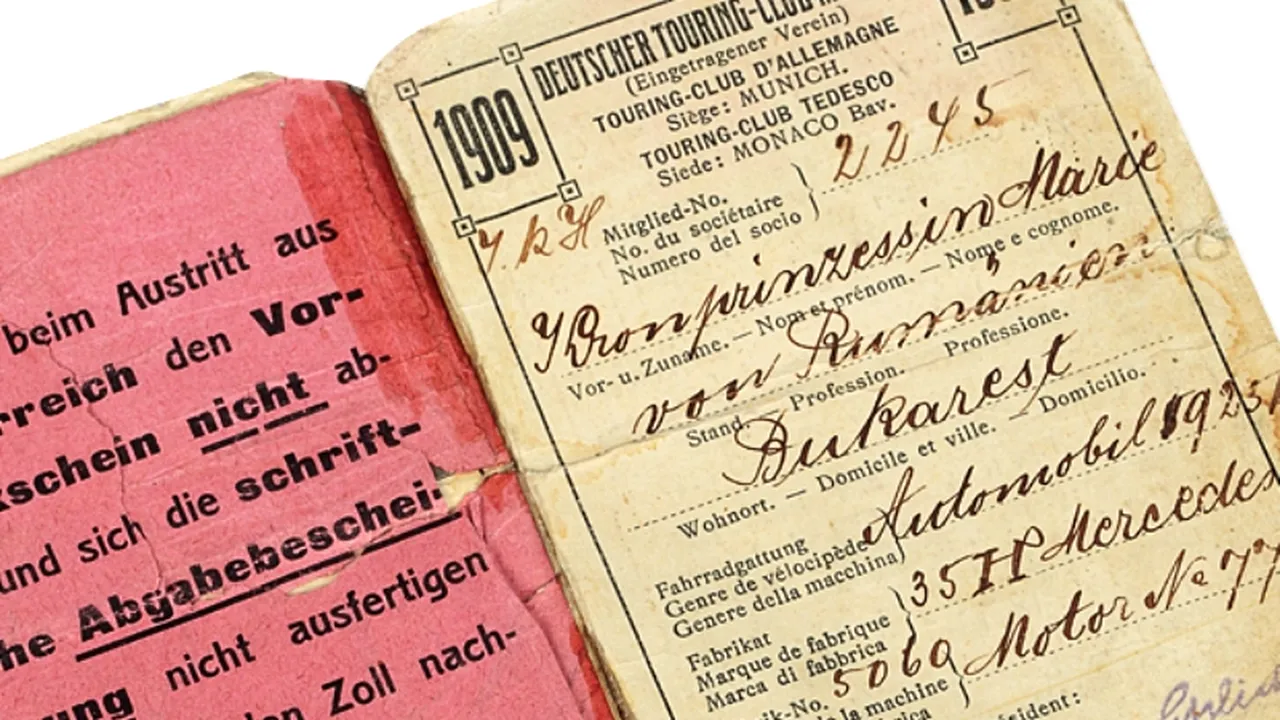 beim Austritt aus
rreich den Vor-
schein nicht ab-
und sich die schrift-
he Abgabebeschei-
ung nicht ausfertigen
den Zoll nach-
1909
DEUTSCHER TOURING-CLUB
(Eingetragener Verein)
TOURING-CLUB D'ALLEMAGNE
Siège: MUNICH.
TOURING-CLUB TEDESCO
Siede: MONACO Bav.
Mitglied-No.
No. du sociétaire
Numero del socio
2245
Kronprinzessin Marie
Vor- u. Zuname. — Nom et prénom. — Nome e cognome.
von Rumänien
Stand. Profession. Professione.
Bukarest
Wohnort. — Domicile et ville. — Domicilio.
Fahrradgattung
Genre de vélocipède
Genere della macchina
Automobil
Fabrikat
Marque de fabrique
Marca di fabbrica
35 HP Mercedes
ik-No. 5060
la machine
Motor No 77